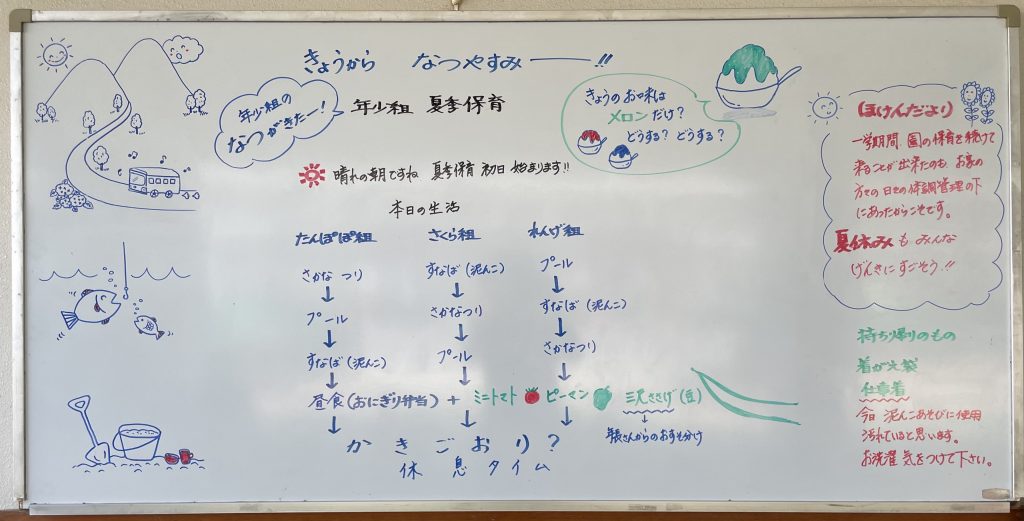 きょうから なつやすみ――!!
年少組の
なつがきたー!
年少組 夏季保育
きょうのお味は
メロンだけ?
どうする? どうする?
晴れの朝ですね 夏季保育 初日 始まります!!
本日の生活
たんぽぽ組
さかなつり
↓
プール
↓
すなば(泥んこ)
↓
さくら組
すなば(泥んこ)
↓
さかなつり
↓
プール
↓
れんげ組
プール
↓
すなば(泥んこ)
↓
さかなつり
↓
昼食(おにぎり弁当) + ミニトマト ピーマン 三尺ささげ(豆)
↓ ↓ ↓ ↓
年長さんからのおすそ分け
かきごおり?
休息タイム
ほけんだより
一学期間 園の保育を続けて
来ることが出来たのも お家の
方での日々の体調管理の下
にあったからこそです。
夏休みもみんな
げんきにすごそう!!
持ち帰りのもの
着がえ袋
仕事着
今日 泥んこあそびに使用
汚れていると思います。
お洗濯 気をつけて下さい。